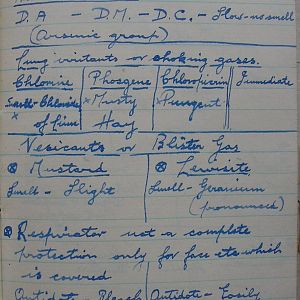 D.A - D.M. - D.C. - Slow - no smell
(Arsenic group)
Lung irritants or choking gases.
Chlorine | Phosgene | Chloropicrin | Immediate
Smell - Chloride of lime | x Musty Hay | x Pungent
Vesicants or Blister Gas
⊗ Mustard | ⊗ Lewisite
Smell - Slight | Smell - Geranium
(pronounced)
⊗ Respirator not a complete
protection only for face etc which
is covered
Antidote - Bleach | Antidote - Easily